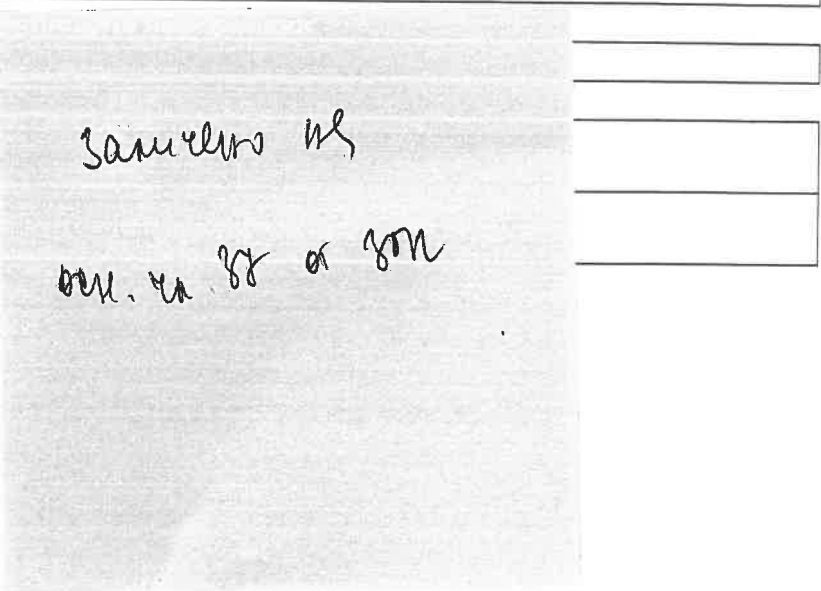 заличено на
осн. чл. 37 от ЗОП